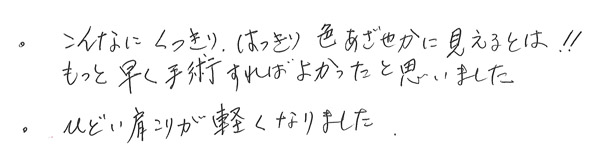 。こんなにくっきり、はっきり色あざやかに見えるとは!!
もっと早く手術すればよかったと思いました
。ひどい肩こりが軽くなりました.